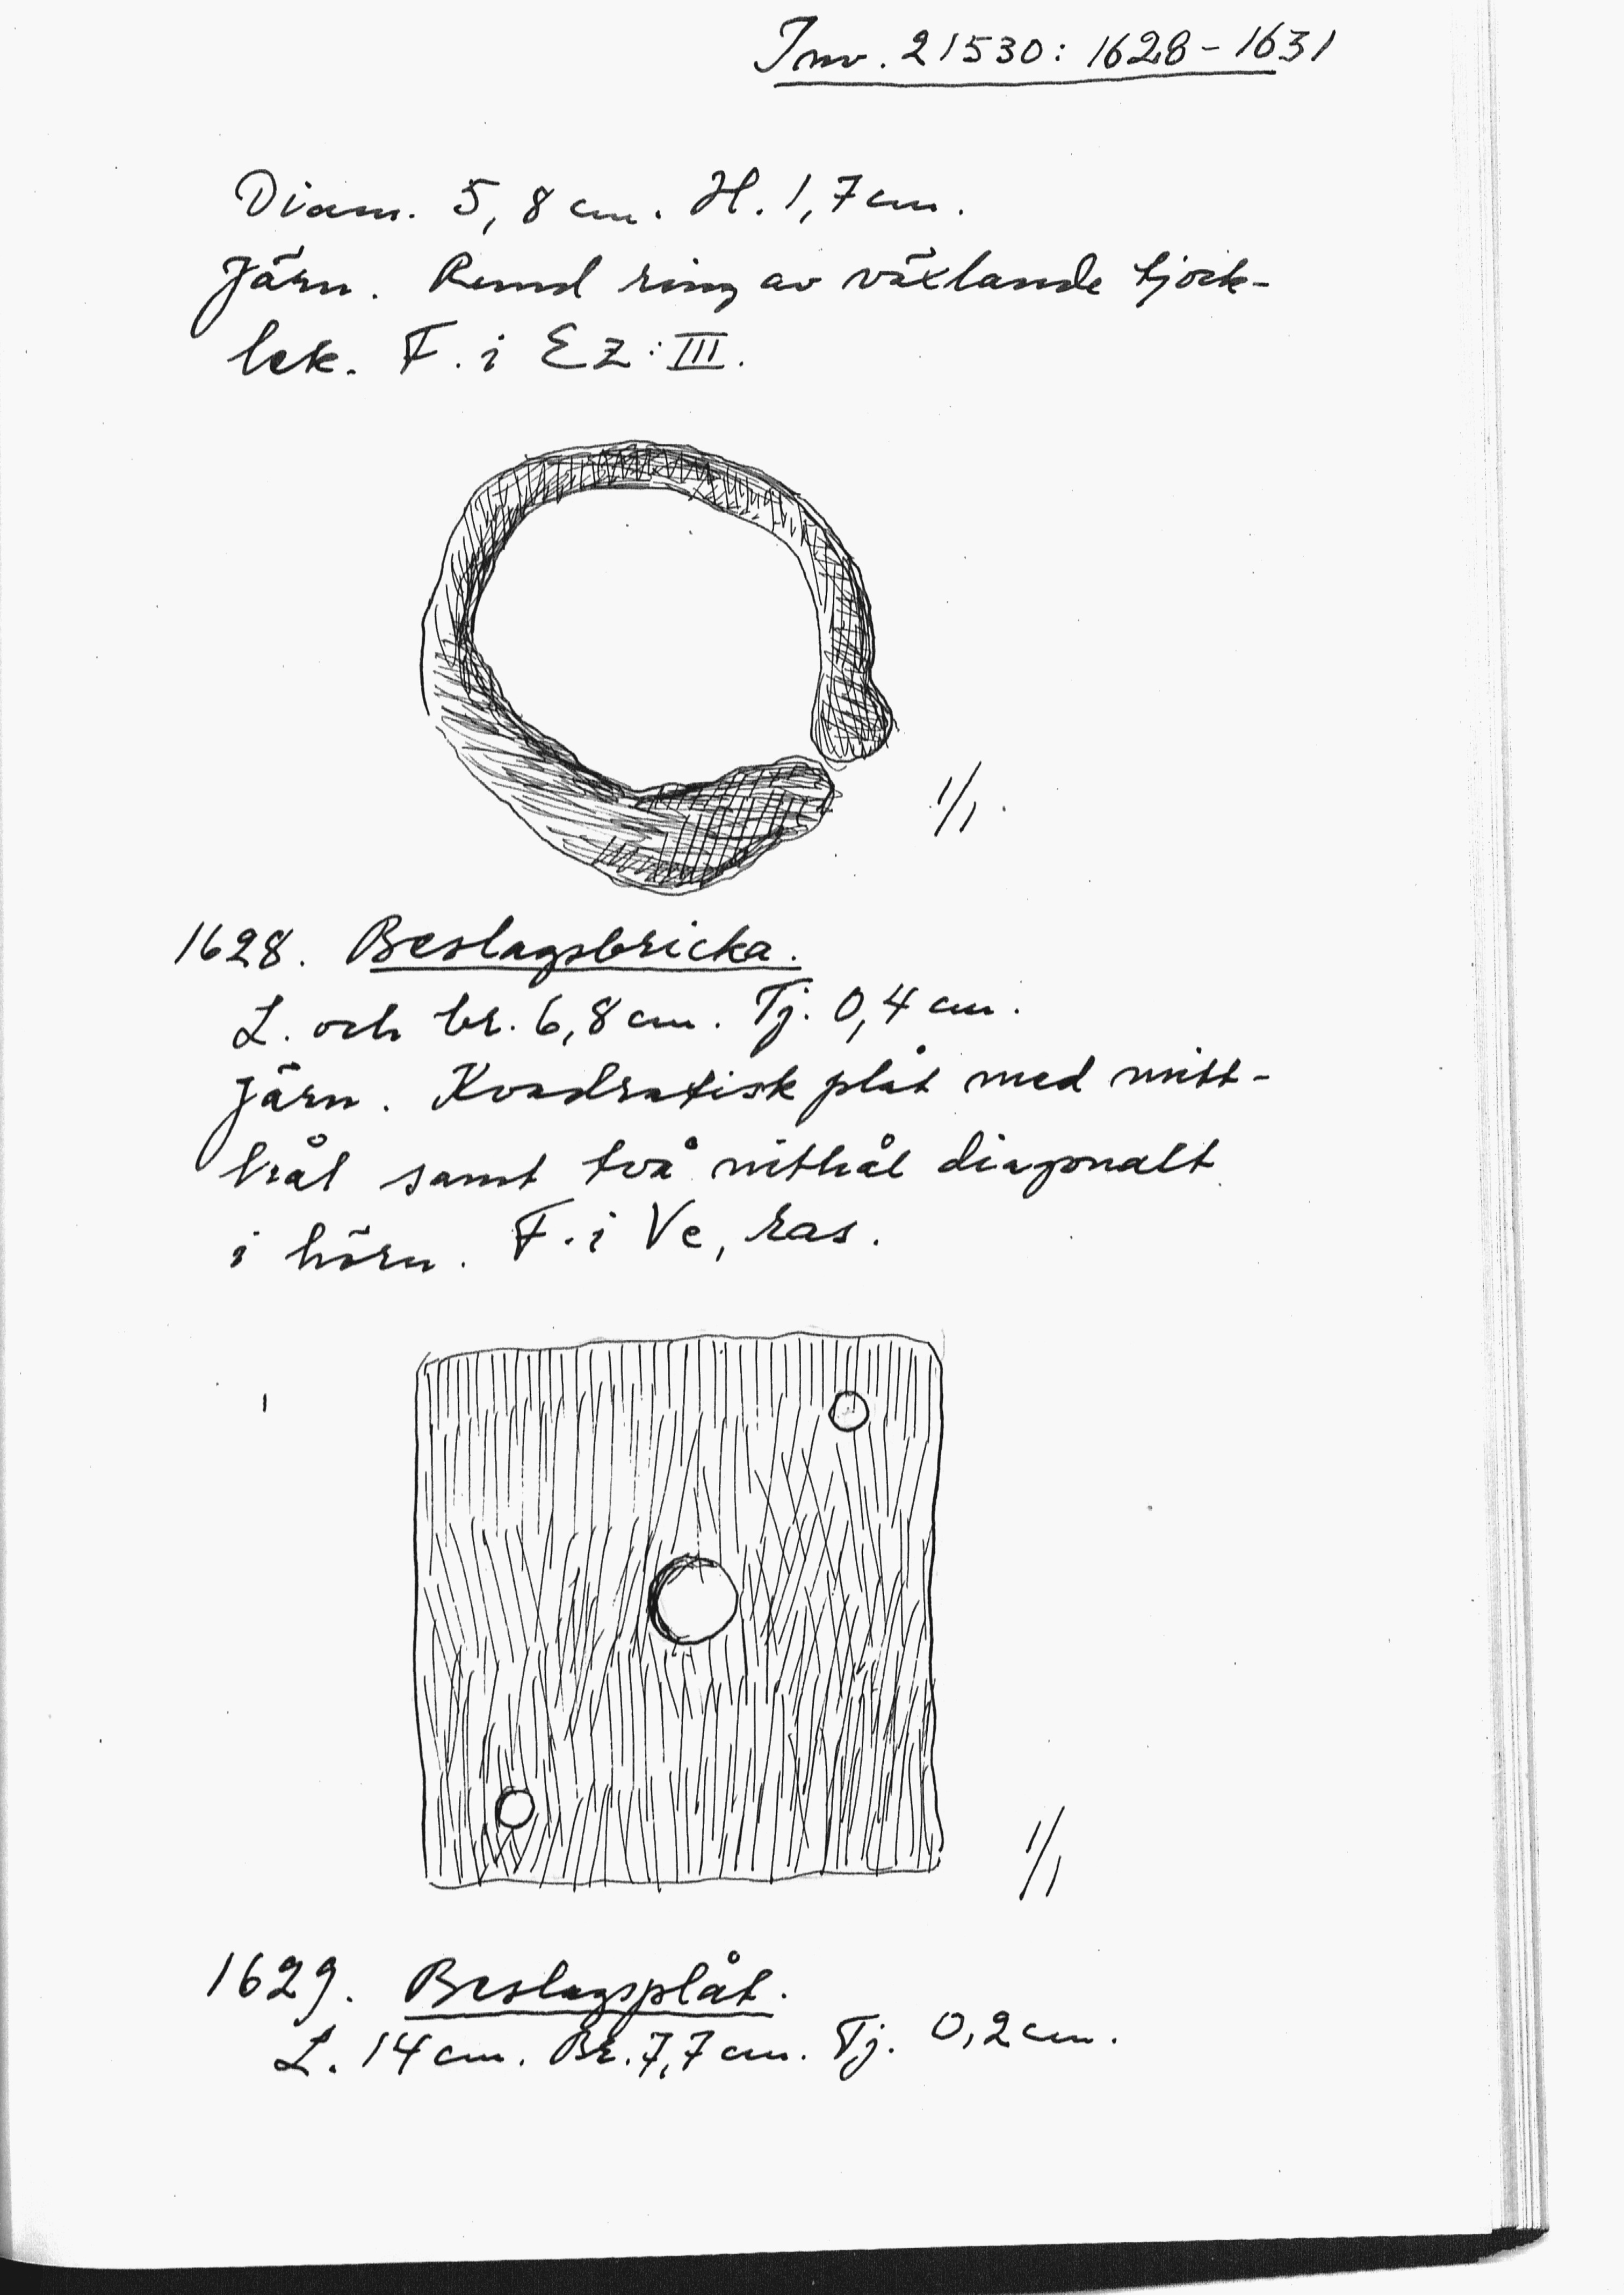 Inv. 21530: 1628-1631
Diam. 5,8 cm. H. 1,7 cm.
Järn. Rund ring av växlande tjock-
lek. F. i Ez:III.
1/1.
1628. Beslagsbricka.
L. och br. 6,8 cm. Tj. 0,4 cm.
Järn. Kvadratisk plåt med mitt-
hål samt två nithål diagonalt
i hörn. F. i Ve, ras.
1/1
1629. Beslagsplåt.
L. 14 cm. Br. 7,7 cm. Tj. 0,2 cm.